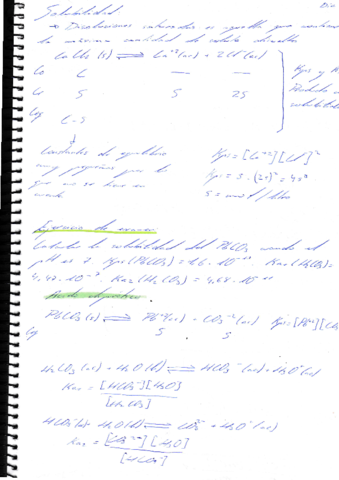 Solubilidad
→ Disoluciones saturadas es aquella que contiene
la máxima cantidad de soluto disuelto
CaCl₂ (s) ⇌ Ca⁺²(ac) + 2Cl⁻(ac)
Co C — —
S S 2S
C-S
Constantes de equilibrio
muy pequeñas por lo
que no se tiene en
cuenta
Kps = [Ca⁺²][Cl⁻]²
Kps = S · (2S)² = 4S³
S = mol / litro
Ejercicio de examen
Calcular la solubilidad del PbCO₃ cuando el
pH es 7. Kps(PbCO₃) = 1,6 · 10 Ka₁(H₂CO₃) =
4,47·10⁻⁷. Ka₂(H₂CO₃) = 4,68·10
Ácido
PbCO₃(s) ⇌ Pb⁺²(ac) + CO₃⁻²(ac) Kps=[Pb⁺²][CO
S S
H₂CO₃(ac) + H₂O(l) ⇌ HCO₃⁻(ac) + H₃O⁺(ac)
Ka₁ = [HCO₃⁻][H₃O]
[H₂CO₃]
HCO₃⁻(ac) H₂O(l) ⇌ CO₃²⁻ + H₃O⁺(ac)
Ka₂ = [CO₃⁻²][H₃O]
[HCO₃⁻]